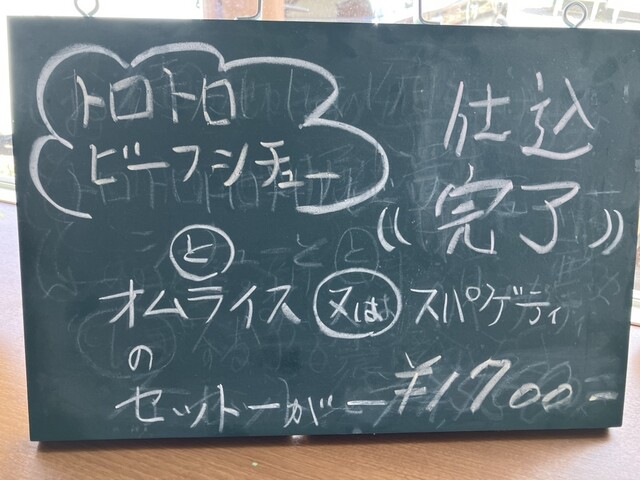 トロトロ
ビーフシチュー
仕込
完了
と
オムライス 又は スパゲティ
の
セットーがー ¥1700-